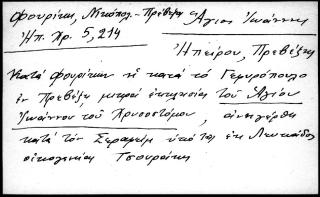 Φουρίκη, Νικόπολ. - Πρέβεζα Άγιος Ιωάννης
Ηπ. Χρ. 5, 214
Ηπείρου, Πρεβέζης
Κατά Φουρίκην κ κατά το Γεμυρόπουλο
εν Πρεβέζη μικρά εκκλησία του Αγίου
Ιωάννου του Χρυσοστόμου, ανηγέρθη
κατά τον Σεραφείμ υπό της εκ Λευκάδος
οικογενείας Τσουράκη